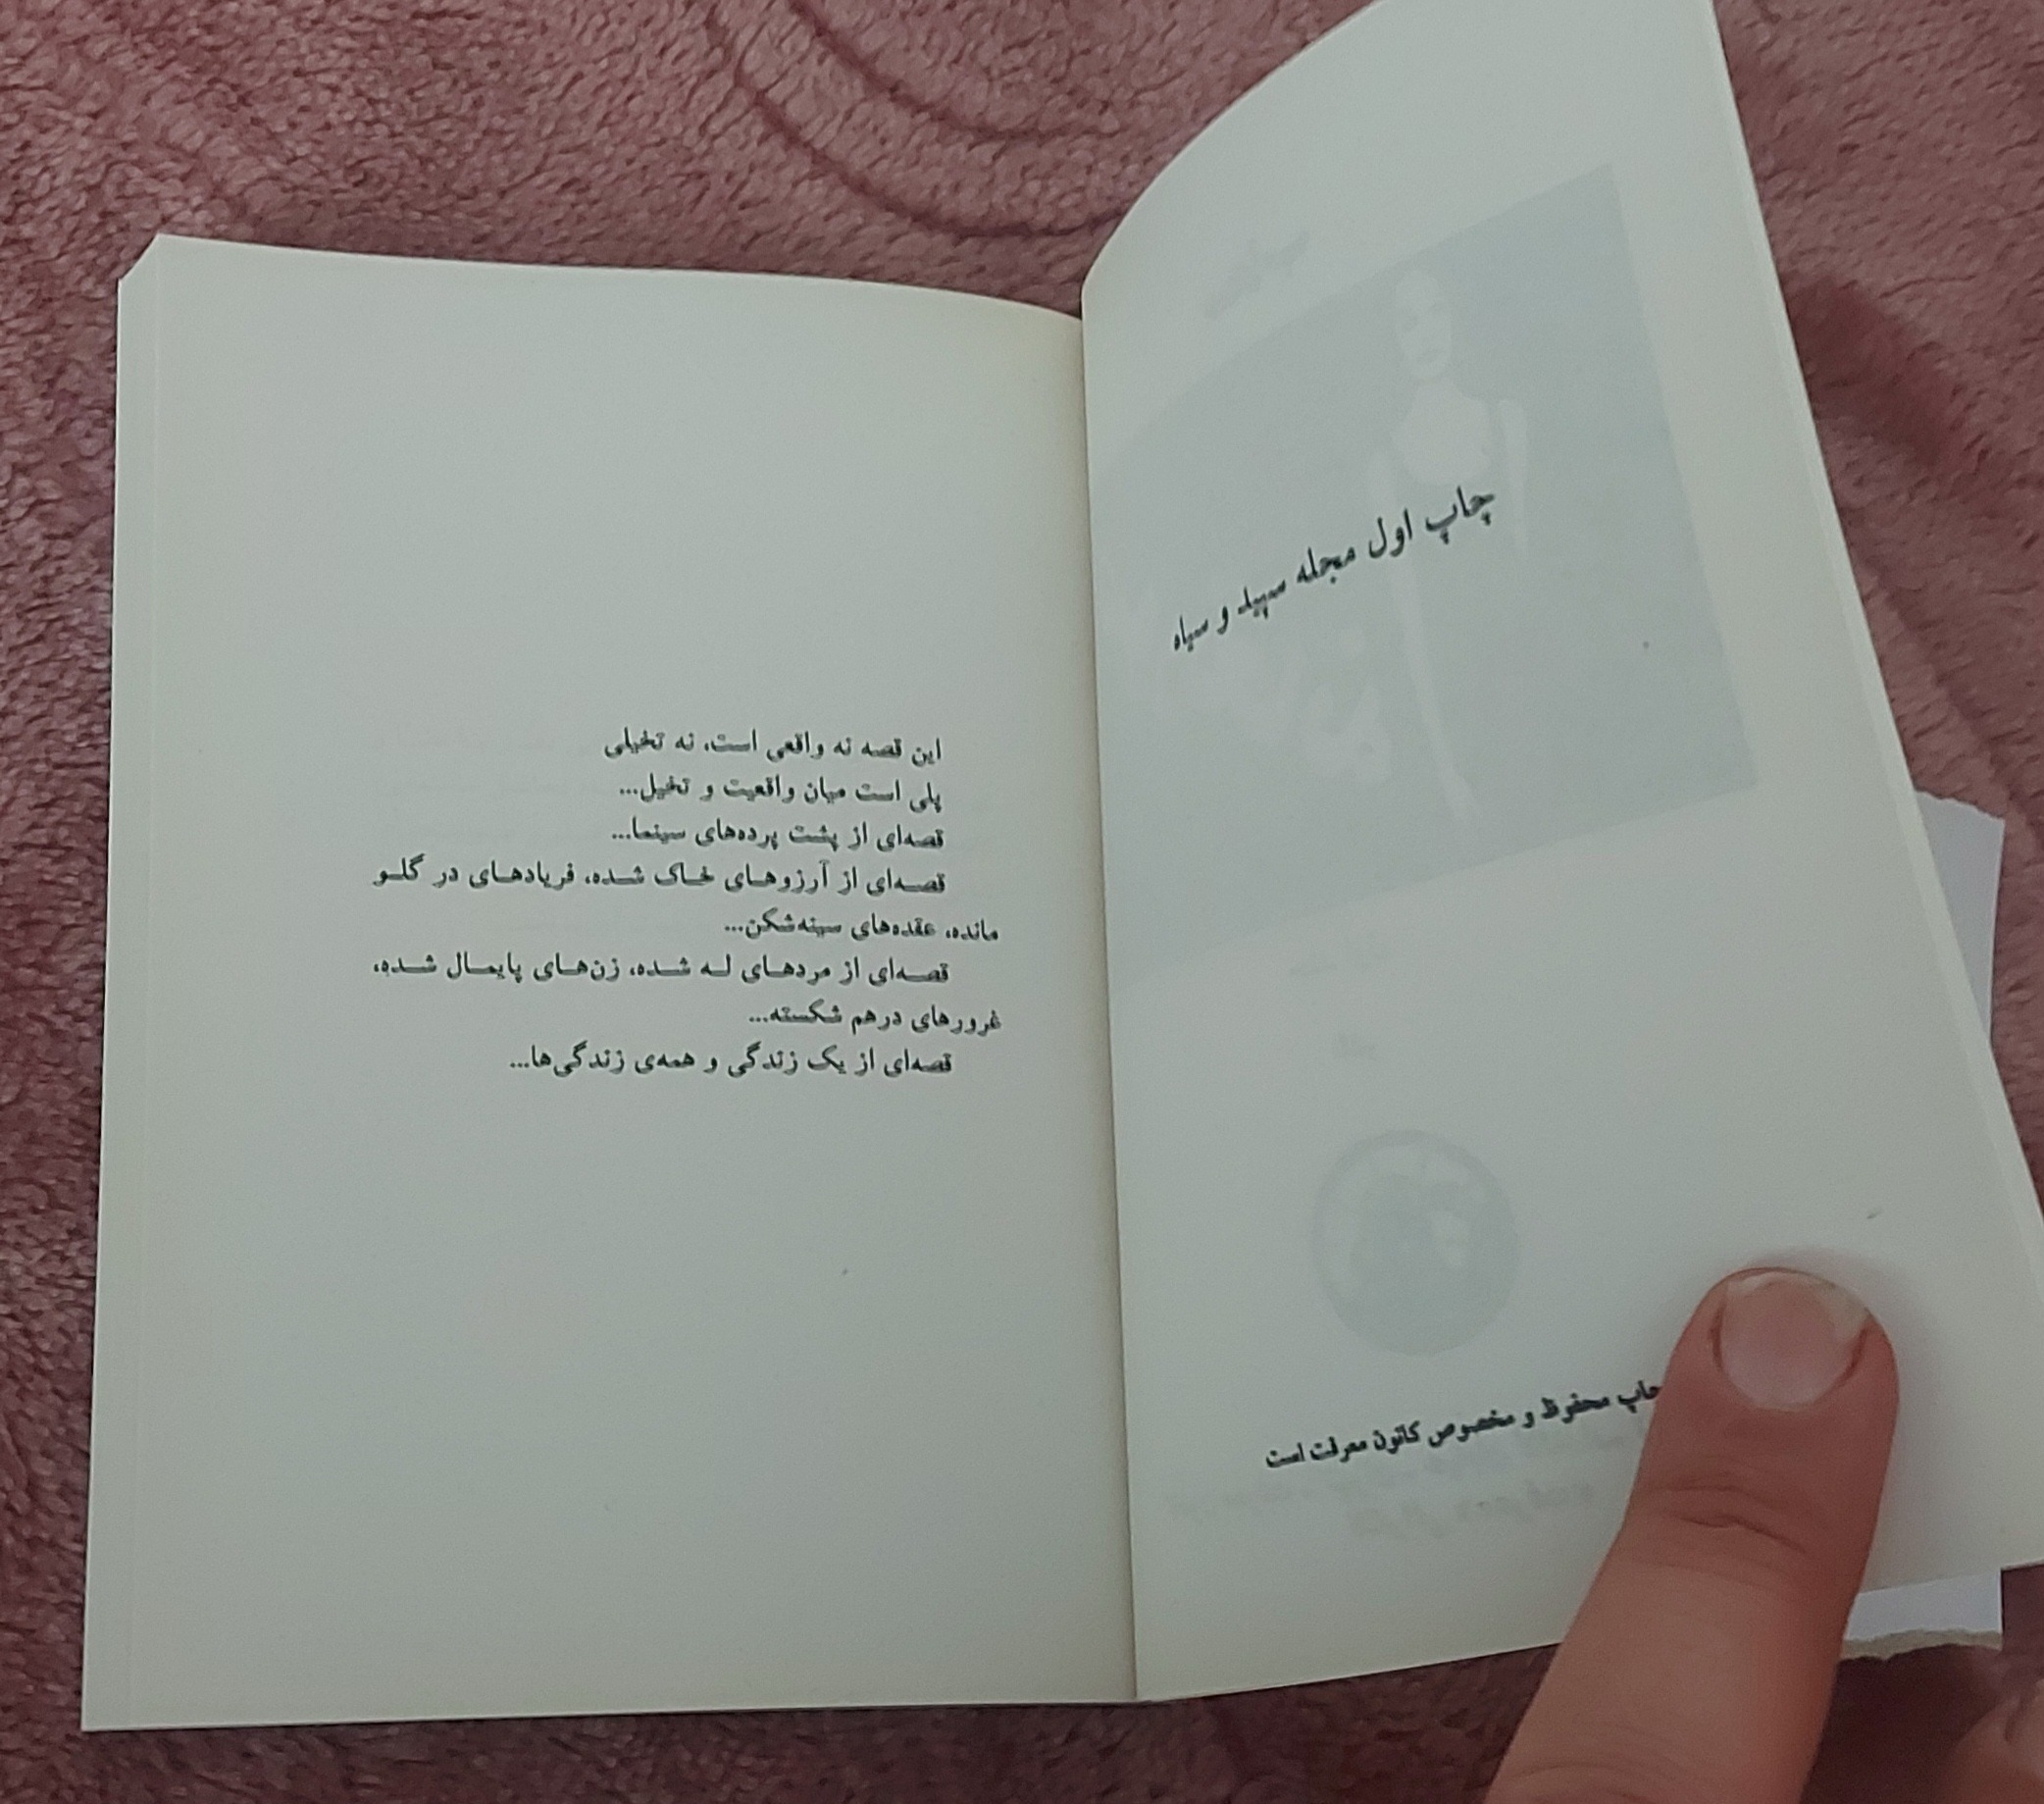 چاپ اول مجله سپید و سیاه
چاپ محفوظ و مخصوص کانون معرفت است
این قصه نه واقعی است، نه تخیلی
پلی است میان واقعیت و تخیل...
قصه‌ای از پشت پرده‌های سینما...
قصه‌ای از آرزوهای خاک شده، فریادهای در گلو
مانده، عقده‌های سینه‌شکن...
قصه‌ای از مردهای له شده، زن‌های پایمال شده،
غرورهای درهم شکسته...
قصه‌ای از یک زندگی و همه‌ی زندگی‌ها...